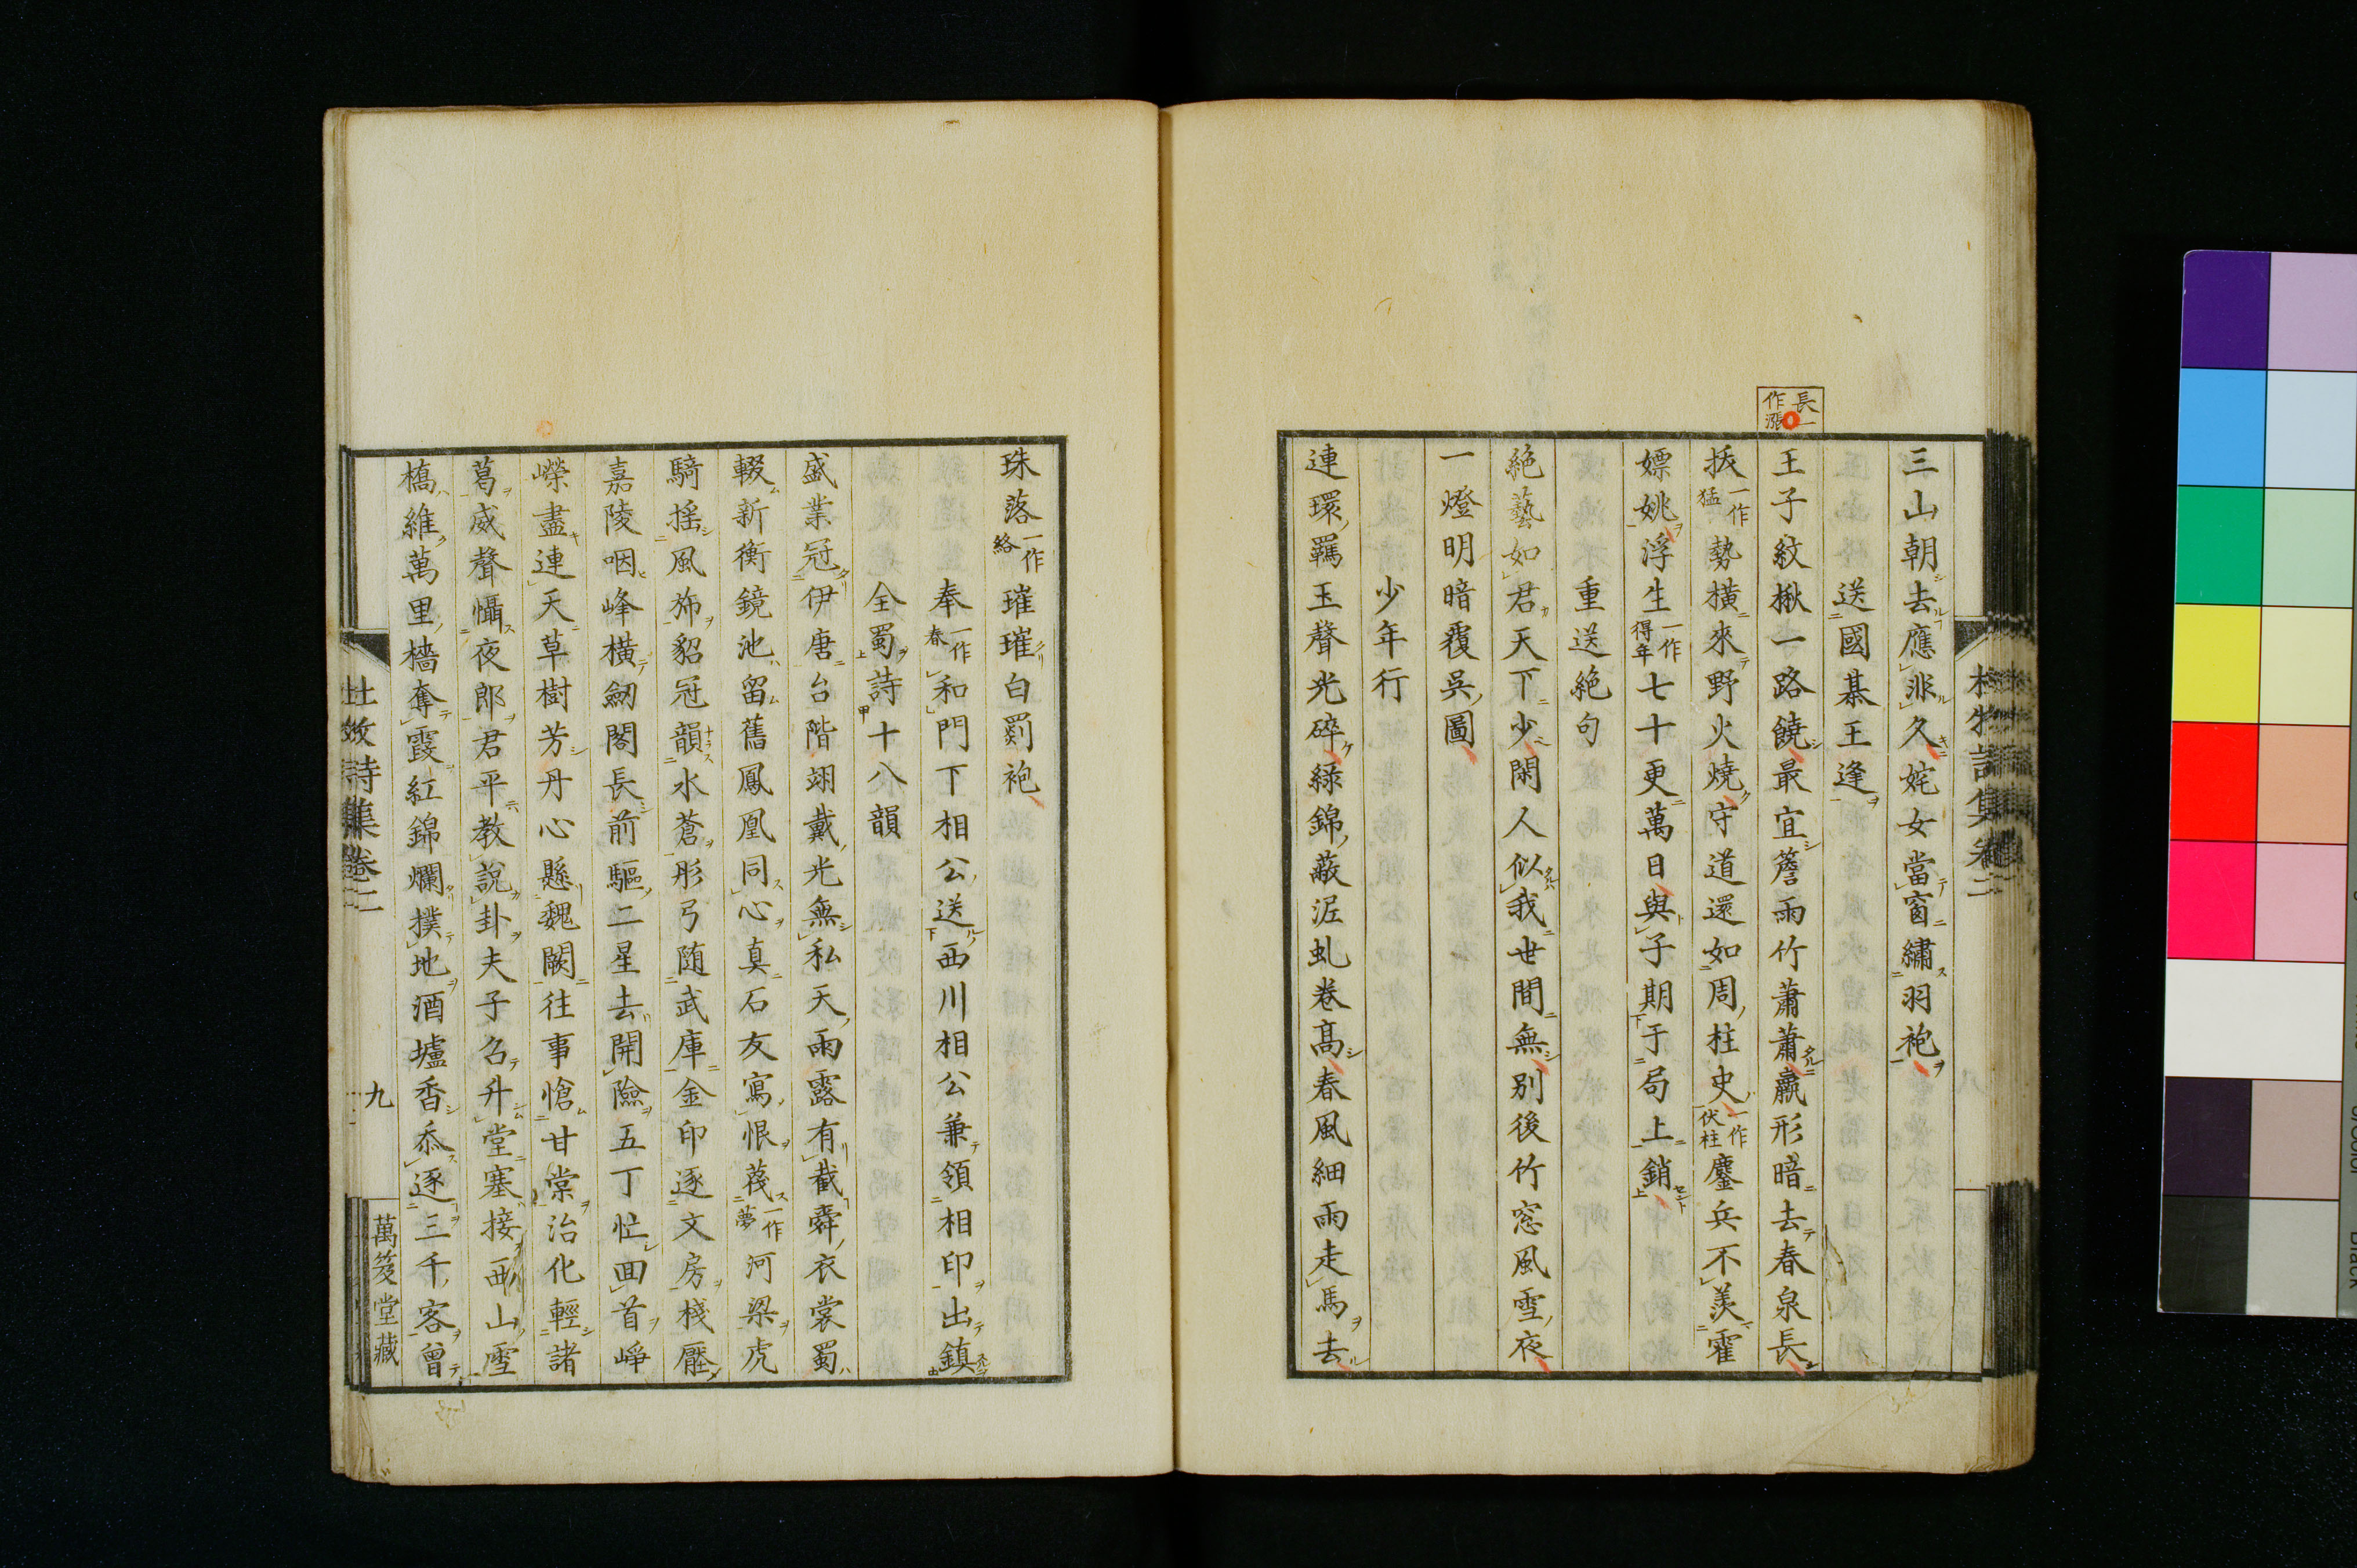 長一
作漲
三山朝去應非久姹女當窗繡羽袍
送國棊王逢
王子紋楸一路饒最宜簷雨竹蕭蕭羸形暗去春泉長
拔一作猛勢橫來野火燒守道還如周柱史一作伏柱鏖兵不羨霍
嫖姚浮生一作得年七十更萬日與子期于局上銷
重送絕句
絕藝如君天下少閑人似我世間無別後竹窓風雪夜
一燈明暗覆吳圖
少年行
連環羈玉聲光碎綠錦蔽泥虬卷髙春風細雨走馬去
珠落一作絡璀璀白罽袍
奉一作春和門下相公送西川相公兼領相印出鎮
全蜀詩十八韻
盛業冠伊唐台階翊戴光無私天雨露有截舜衣裳蜀
輟新衡鏡池留舊鳳凰同心真石友寫恨莪一作夢河梁虎
騎揺風斾貂冠韻水蒼彤弓随武庫金印逐文房棧壓
嘉陵咽峰橫劒閣長前驅二星去開險五丁忙囬首崢
嶸盡連天草樹芳丹心懸魏闕往事愴甘棠治化輕諸
葛威聲懾夜郎君平教說卦夫子召升堂塞接西山雪
橋維萬里檣奪霞紅錦爛撲地酒壚香忝逐三千客曾
杜牧詩集卷二
九
萬笈堂藏